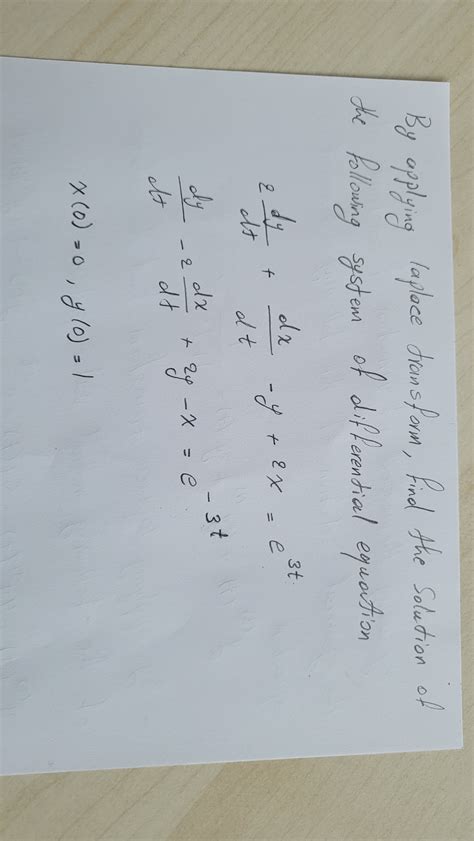 By applying laplace transform, find the Solution of
the following system of differential equation
2 dy/dt + dx/dt - y + 2x = e^3t
dy/dt - 2 dx/dt + 2y - x = e^-3t
x(0) = 0, y(0) = 1